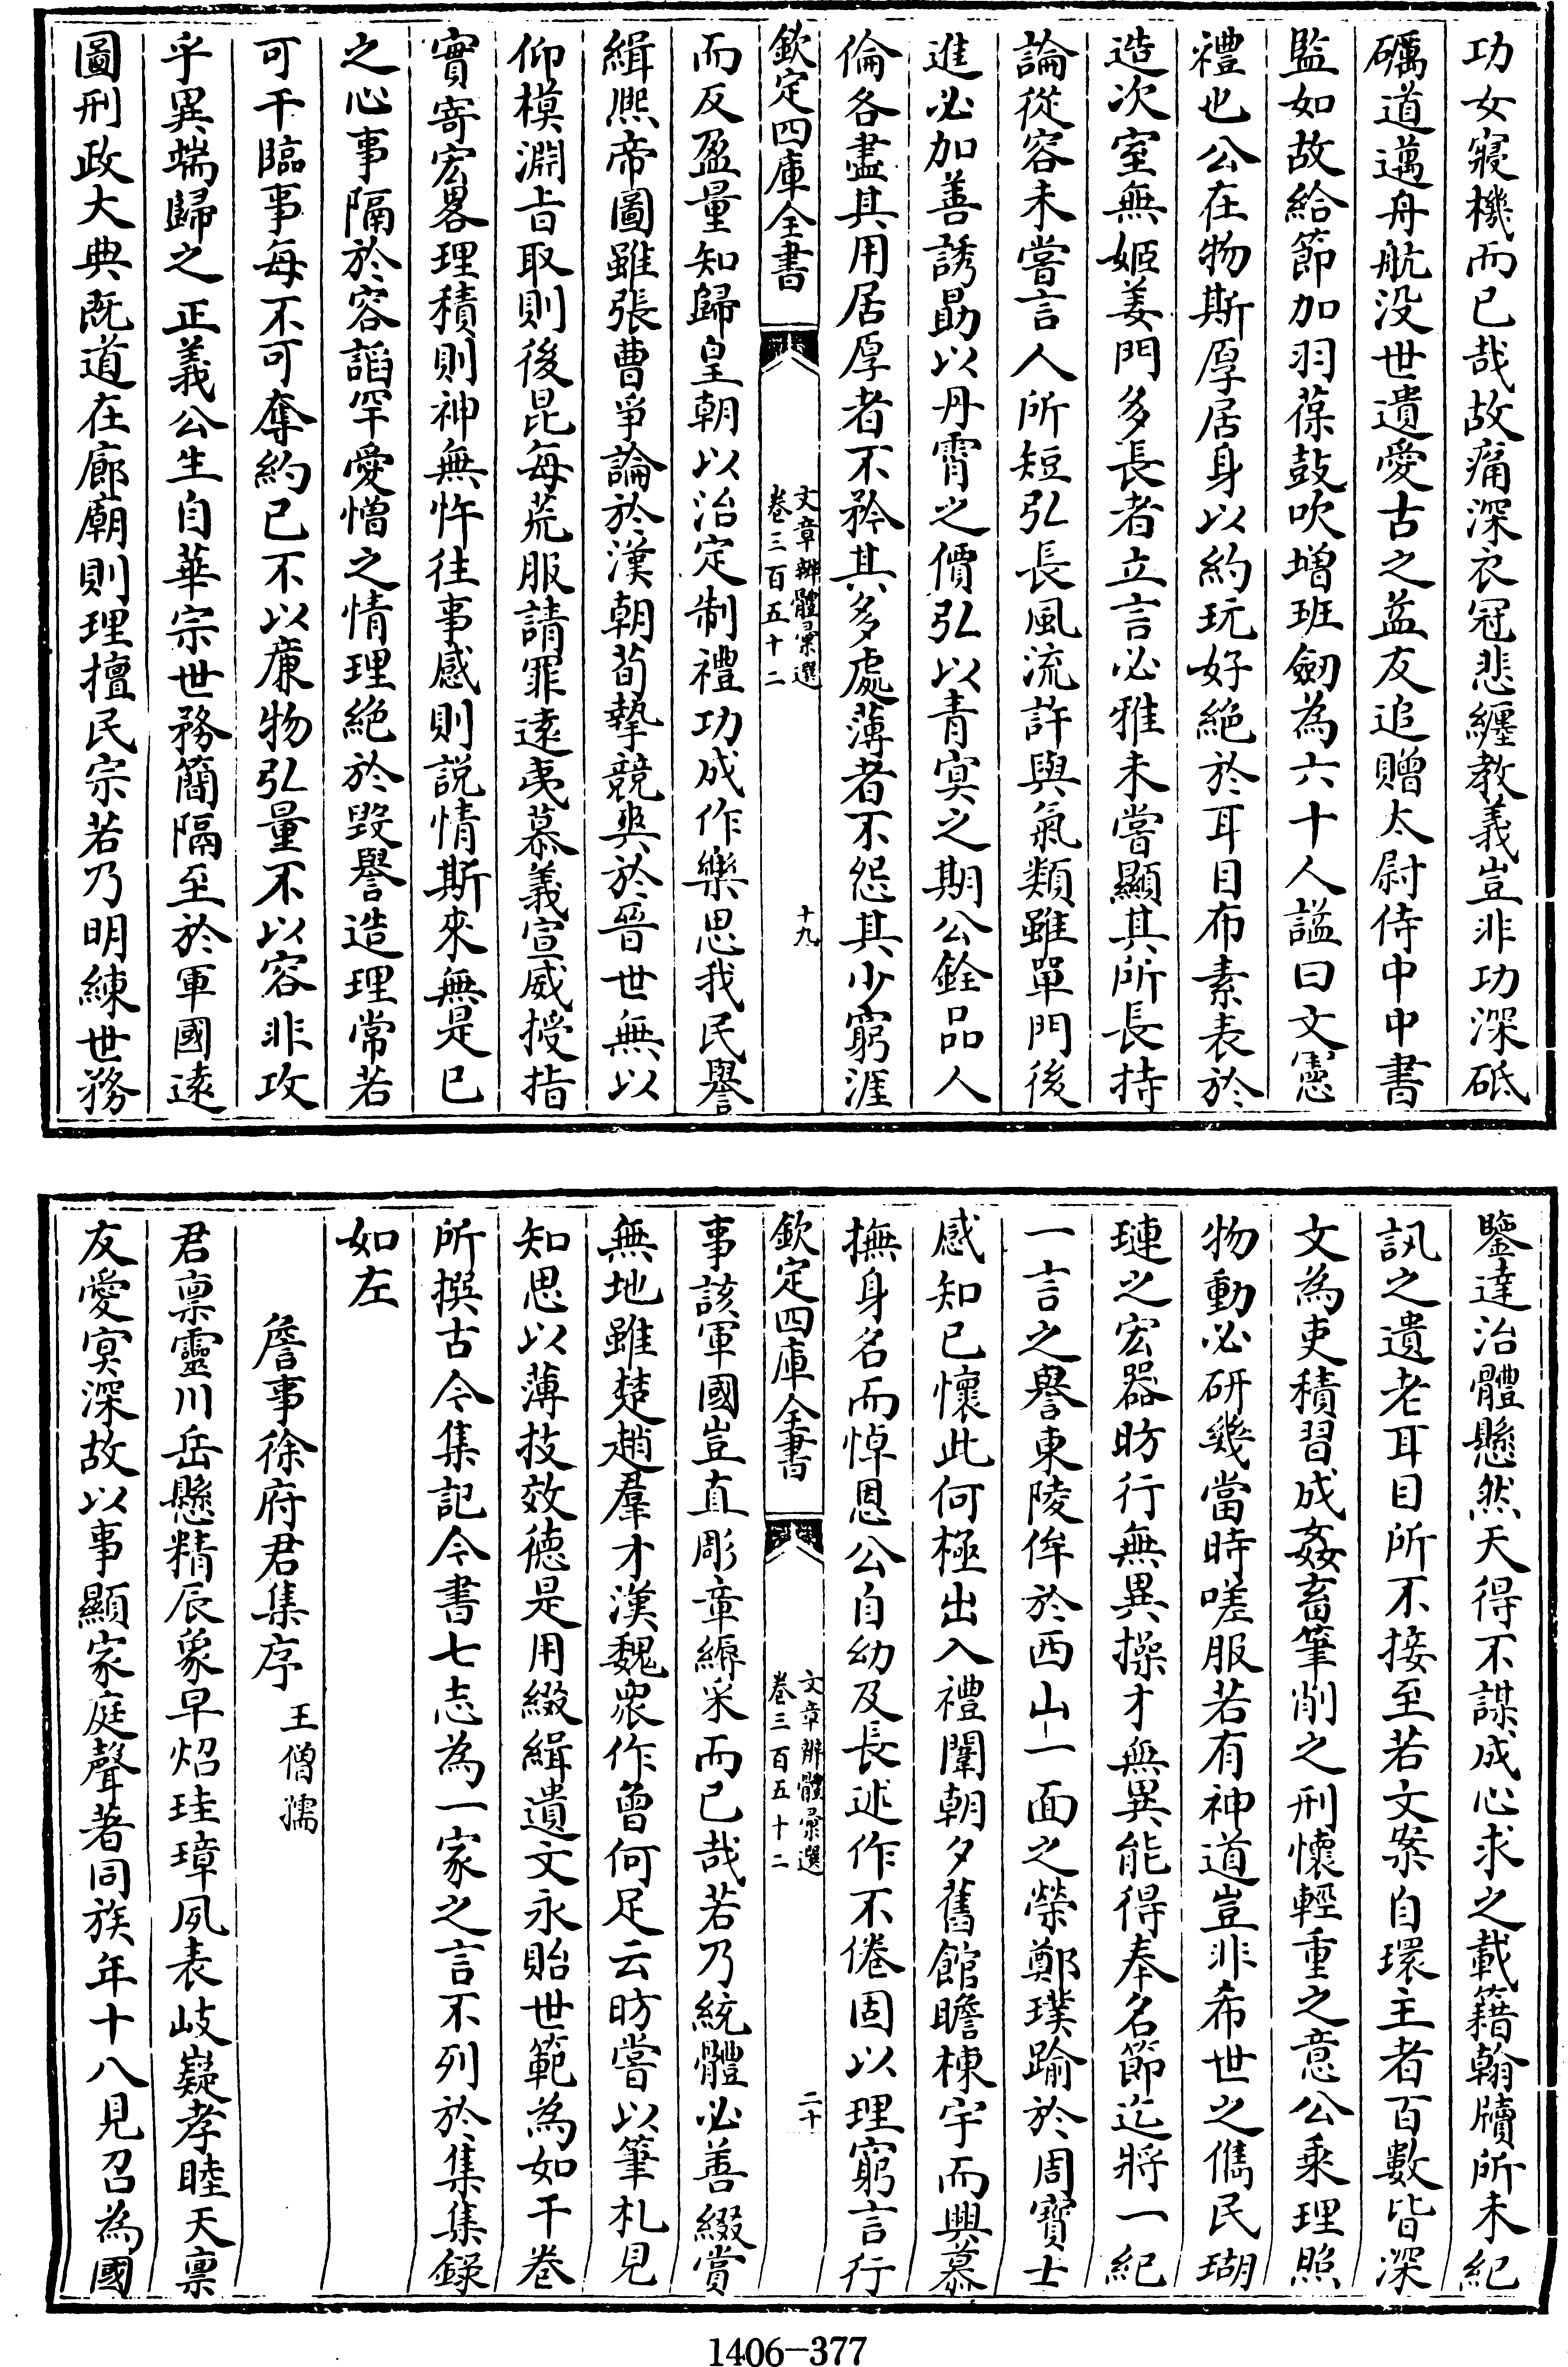 功女寢機而已哉故痛深衣冠悲纒教義豈非功深砥
礪道邁舟航没世遺愛古之益友追贈太尉侍中中書
監如故給節加羽葆鼓吹增班劒為六十人諡曰文憲
禮也公在物斯厚居身以約玩好絶於耳目布素表於
造次室無姬姜門多長者立言必雅未嘗顯其所長持
論從容未嘗言人所短弘長風流許與氣類雖單門後
進必加善誘勗以丹霄之價弘以青冥之期公銓品人
倫各盡其用居厚者不矜其多處薄者不怨其少窮涯
欽定四庫全書
文章辨體彙選
卷三百五十二
十九
而反盈量知歸皇朝以治定制禮功成作樂思我民譽
緝熈帝圖雖張曹爭論於漢朝荀摯競爽於晉世無以
仰模淵旨取則後昆每荒服請罪逺夷慕義宣威授指
實寄宏畧理積則神無忤往事感則説情斯來無是已
之心事隔於容諂罕愛憎之情理絶於毀譽造理常若
可干臨事每不可奪約已不以亷物弘量不以容非攻
乎異端歸之正義公生自華宗世務簡隔至於軍國逺
圖刑政大典既道在廊廟則理擅民宗若乃明練世務
鑒達治體懸然天得不謀成心求之載籍翰牘所未紀
訊之遺老耳目所不接至若文案自環主者百數皆深
文為吏積習成姦畜筆削之刑懷輕重之意公乘理照
物動必研幾當時嗟服若有神道豈非希世之儁民瑚
璉之宏器昉行無異操才無異能得奉名節迄將一紀
一言之譽東陵侔於西山一面之榮鄭璞踰於周寳士
感知已懷此何極出入禮闈朝夕舊館瞻棟宇而興慕
撫身名而悼恩公自幼及長述作不倦固以理窮言行
欽定四庫全書
文章辨體彙選
卷三百五十二
二十
事該軍國豈直彫章縟采而已哉若乃統體必善綴賞
無地雖楚趙羣才漢魏衆作曾何足云昉嘗以筆札見
知思以薄技效德是用綴緝遺文永貽世範為如干卷
所撰古今集記今書七志為一家之言不列於集集錄
如左
詹事徐府君集序
王僧孺
君禀靈川岳懸精辰象早炤珪璋夙表岐嶷孝睦天禀
友愛冥深故以事顯家庭聲著同族年十八見召為國
1406-377